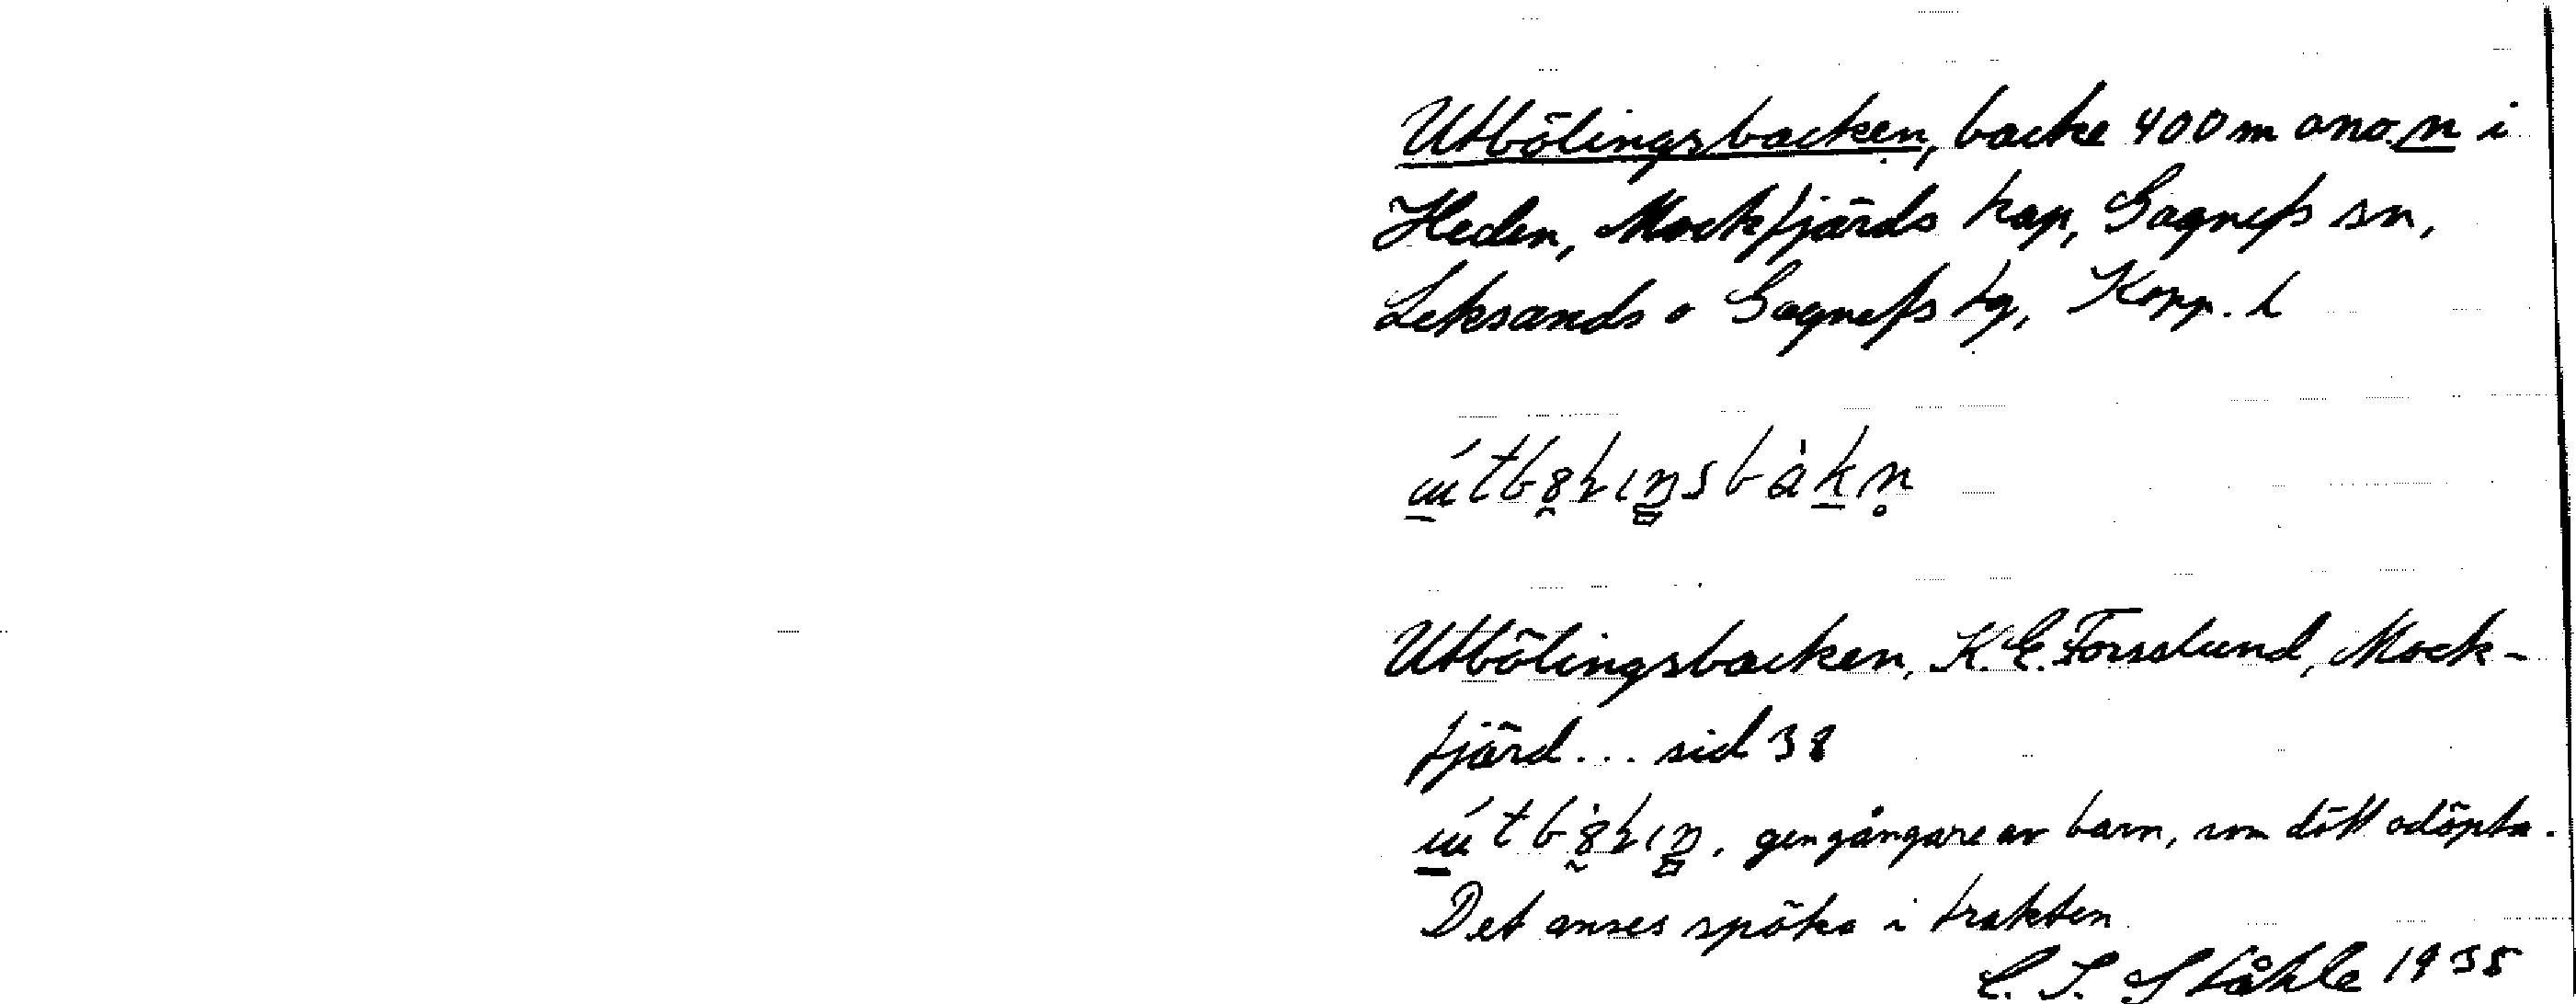 Utbölingsbacken, backe 400 m ono n i
Heden, Mockfjärds kap, Gagnefs sn,
Leksands o Gagnefs tg, Kopp. l
Utbölingsbacken, K.E. Forsslund, Mock-
fjärd... sid 38
gengångare av barn, som dött odöpta.
Det anses spöka i trakten
C. I. Ståhle 1938